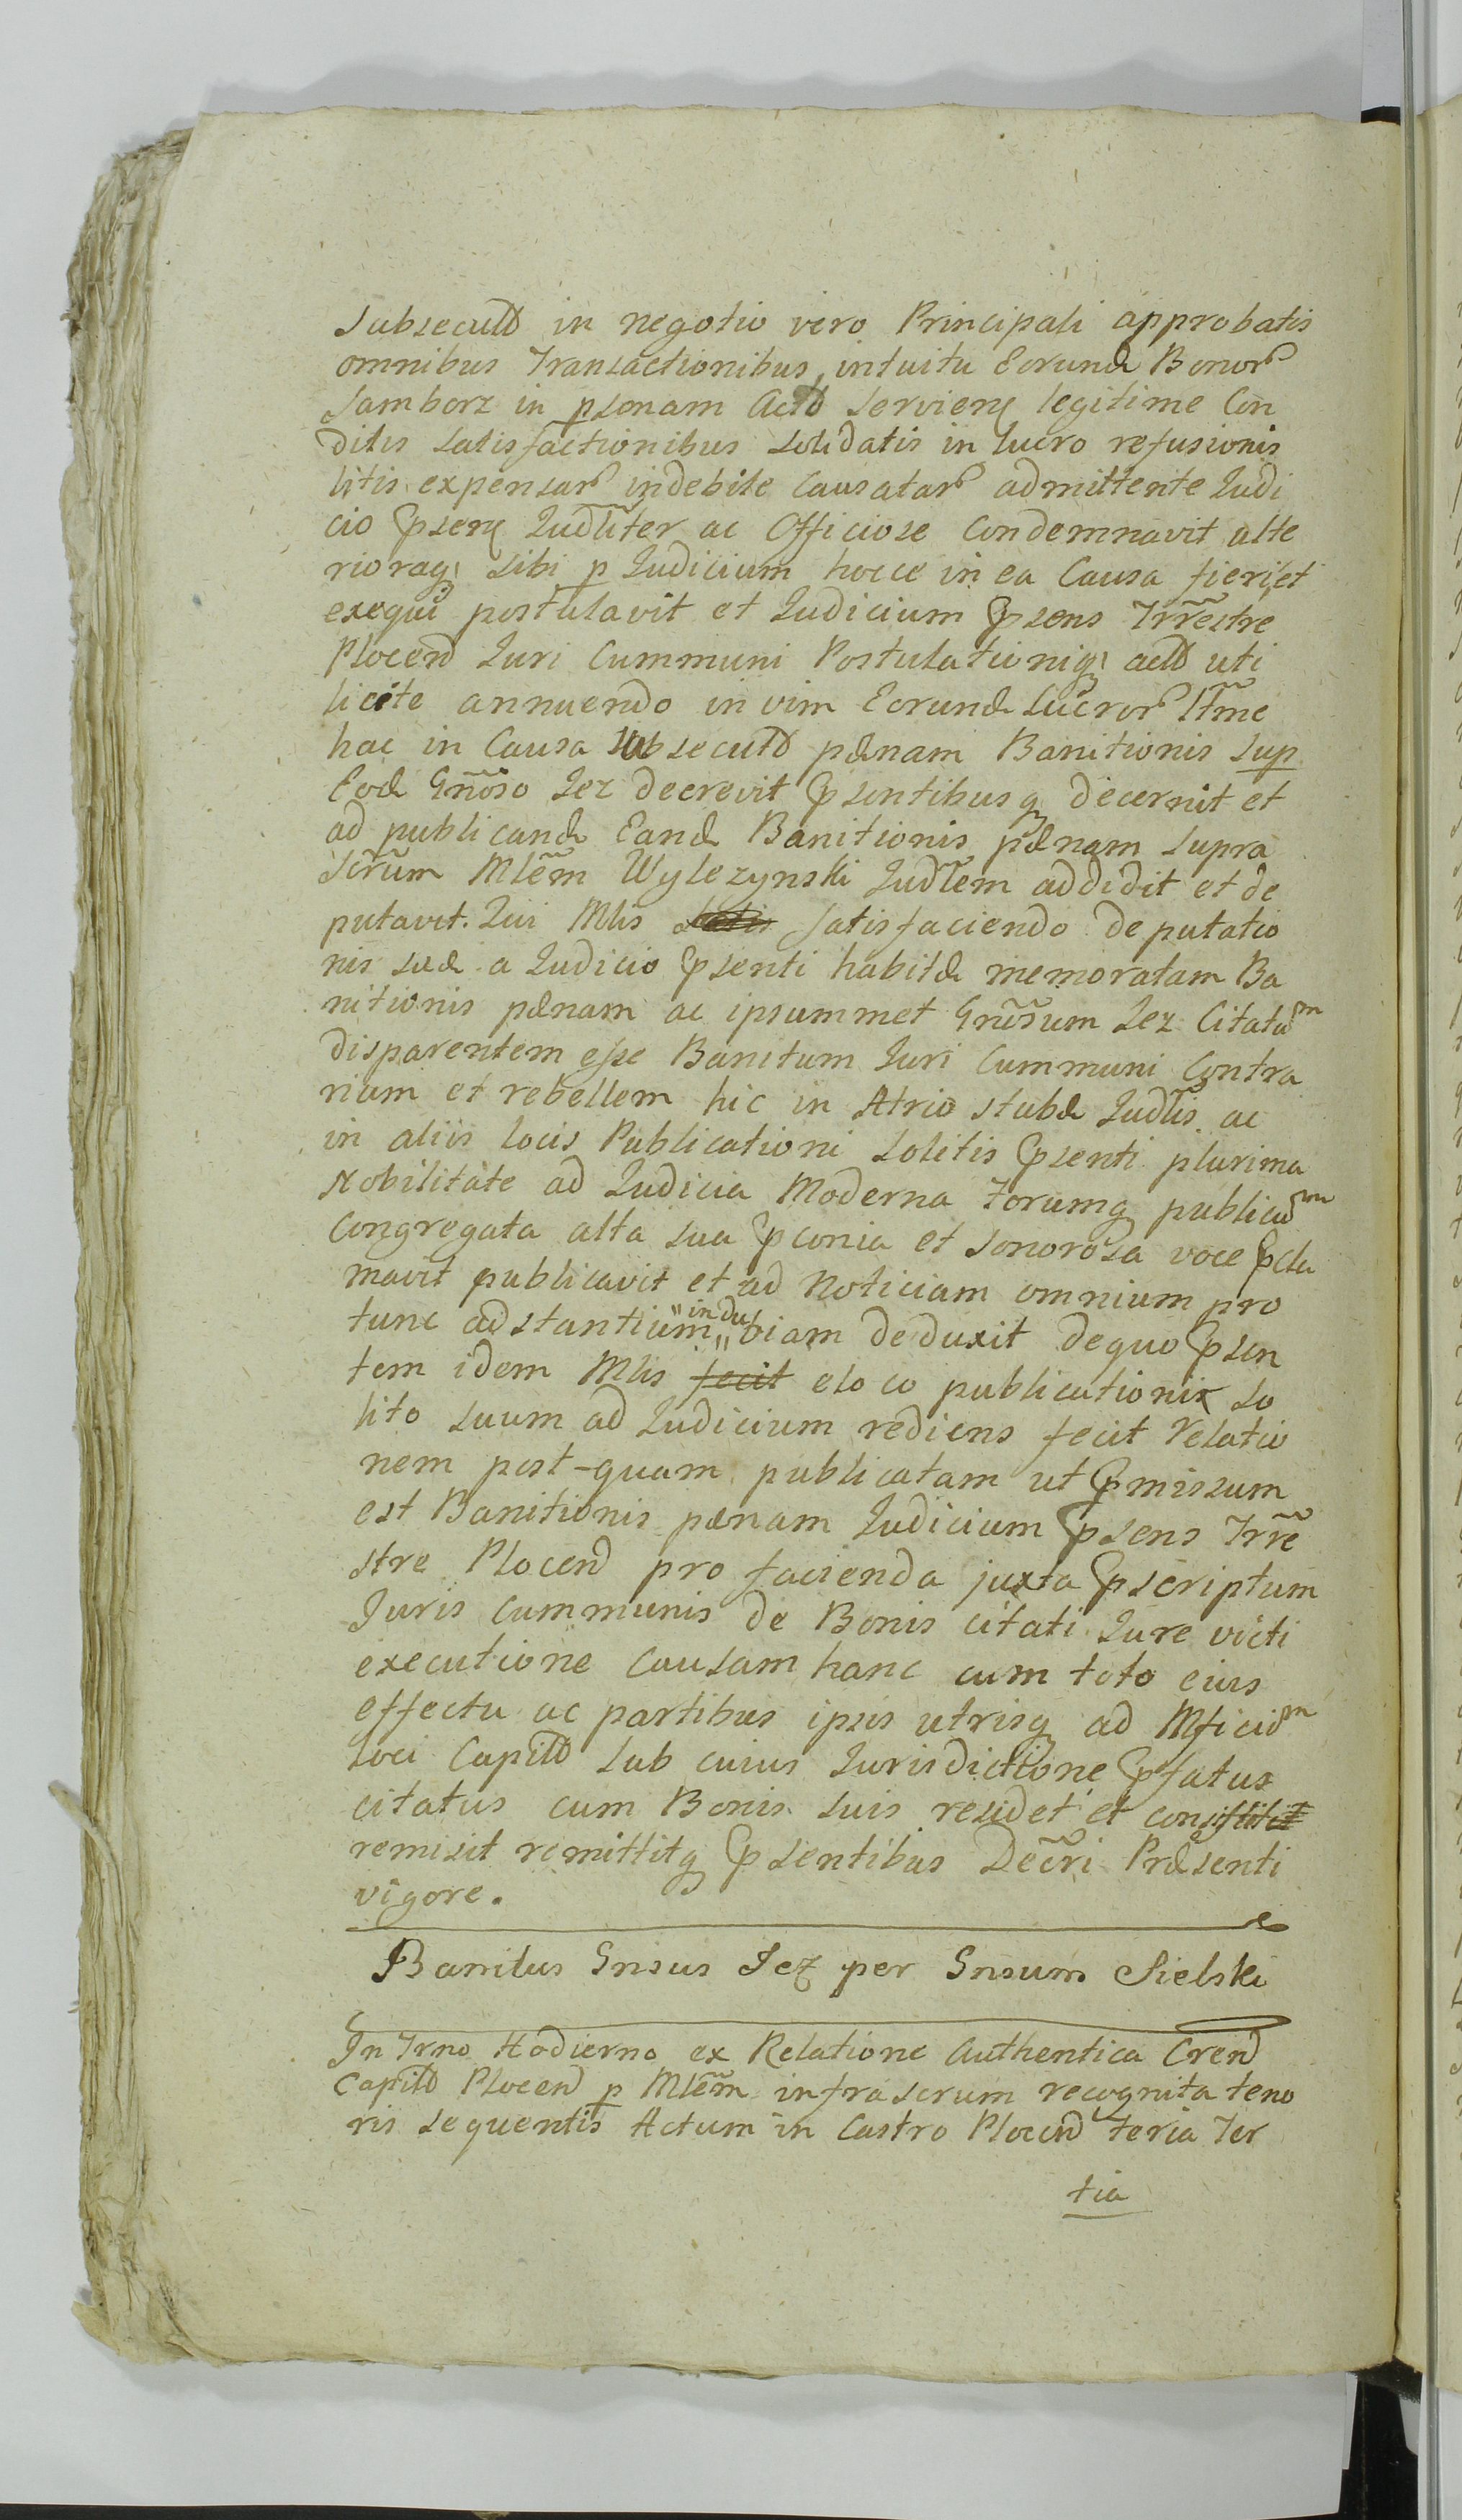 Subsecutt in negotio vero Principali approbatis
omnibus Transactionibus, intuitu Eorundæ Bonor
Samborz in psonam Actt servienȩ legitime Con
ditis satisfactionibus solidatis in lucro refusionis
litis expensar indebite Causatar admittente Judi
cio Psenȩ Judlĩter ac Officiose Condemnavit alte
rioraq sibi p Judicium hocce in ea Causa fieri et
exequi postulavit et Judicium Psens Trr̃estre
Plocen Juri Cummuni Postulationiq actt uti
licite annuendo in vim Eorundæ Lucror ltm̃e
hac in Causa Subsecutt pænam Banitionis sup
Eodæ Gnõso Jez decrevit Psentibusq decernit et
ad publicandæ Eandæ Banitionis pænam supra
scr̃um Mlẽm Wylezynski Judlẽm addidit et de
putavit. Qui Mlis satisfaciendo deputatio
nis suæ a Judicio Psenti habitæ memoratam Ba
nitionis pænam ac ipsummet Gnõsum Jez Citatum
disparentem esse Banitum Juri Cummuni Contra
rium et rebellem hic in Atrio stubæ Judl̃is ac
in aliis locis Publicationi Solitis Psenti plurima
Nobilitate ad Judicia Moderna Forumq publicum
Congregata alta sua Pconia et sonorosa voce Pcla
mavit publicavit et ad Noticiam omnium pro
tunc adstantium "indu" biam deduxit dequo Psen
tem idem Mlis fecit eloco publicationis so
lito suum ad Judicium rediens fecit Relatio
nem post-quam publicatam ut Pmissum
est Banitionis pænam Judicium Psens Trr̃e
stre Plocen pro facienda juxta Pscriptum
Juris Cummunis de Bonis citati Jure victi
executione Causam hanc cum toto eius
effectu ac partibus ipsis utrisq ad Mficium
loci Capitt sub cuius Jurisdictione Pfatus
citatus cum Bonis suis residet et consistit
remisit remittitq Psentibus Decr̃i Præsenti
vigore.
Banitus Gnsus Jez per Gnsum Sielski
In Trno Hodierno ex Relatione Authentica Cren
Capitt Plocen p Mlẽm infra scrum recognita teno
ris sequentis Actum in Castro Plocen feria Ter
tia